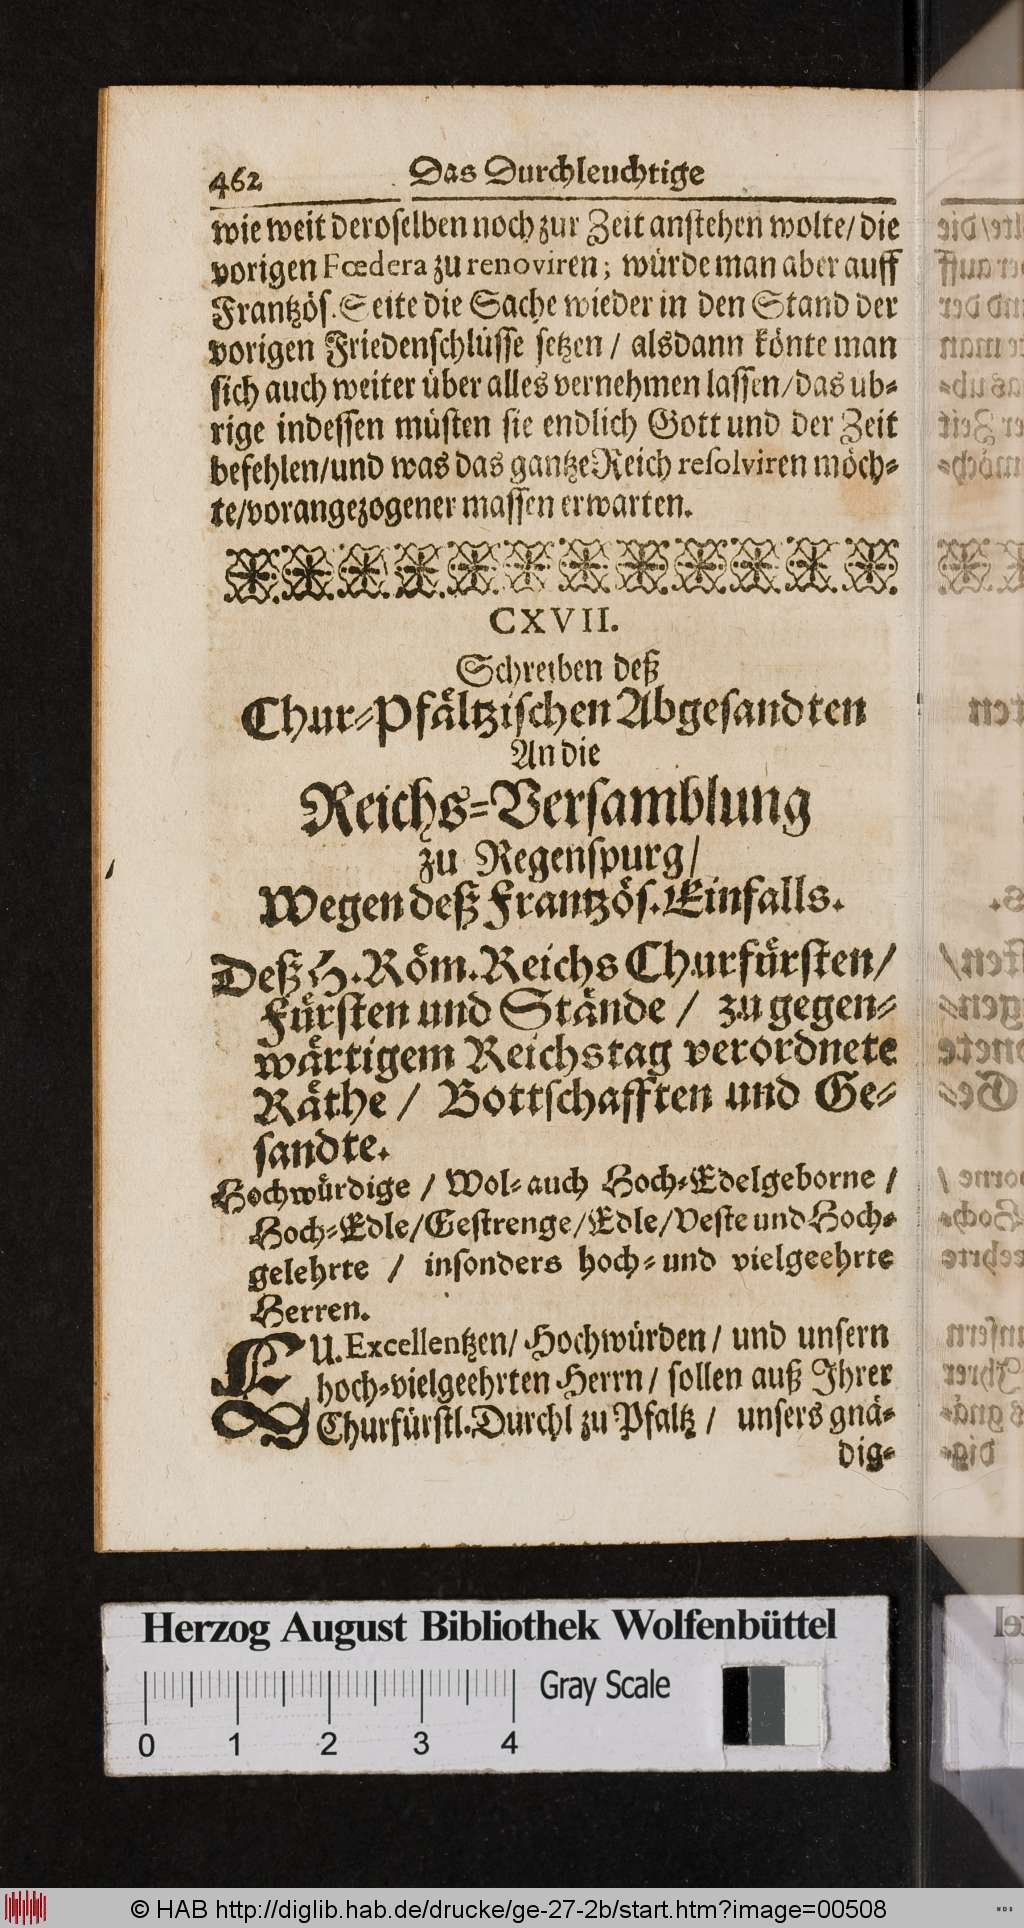 462 Das Durchleuchtige
wie weit deroselben noch zur Zeit anstehen wolte/die
vorigen Fœdera zu renoviren; würde man aber auff
Frantzös. Seite die Sache wieder in den Stand der
vorigen Friedenschlüsse setzen / alsdann könte man
sich auch weiter über alles vernehmen lassen/das ub-
rige indessen müsten sie endlich Gott und der Zeit
befehlen/und was das gantze Reich resolviren möch-
te/vorangezogener massen erwarten.
CXVII.
Schreiben deß
Chur-Pfältzischen Abgesandten
An die
Reichs-Versamblung
zu Regenspurg/
Wegen deß Frantzös. Einfalls.
Deß H. Röm. Reichs Churfürsten/
Fürsten und Stände / zu gegen-
wärtigem Reichstag verordnete
Räthe / Bottschafften und Ge-
sandte.
Hochwürdige / Wol- auch Hoch-Edelgeborne /
Hoch-Edle/Gestrenge/Edle/Veste und Hoch-
gelehrte / insonders hoch- und vielgeehrte
Herren.
EU. Excellentzen/ Hochwürden / und unsern
hoch-vielgeehrten Herrn / sollen auß Ihrer
Churfürstl. Durchl zu Pfaltz / unsers gnä-
dig-
Herzog August Bibliothek Wolfenbüttel
Gray Scale
0 1 2 3 4
© HAB http://diglib.hab.de/drucke/ge-27-2b/start.htm?image=00508